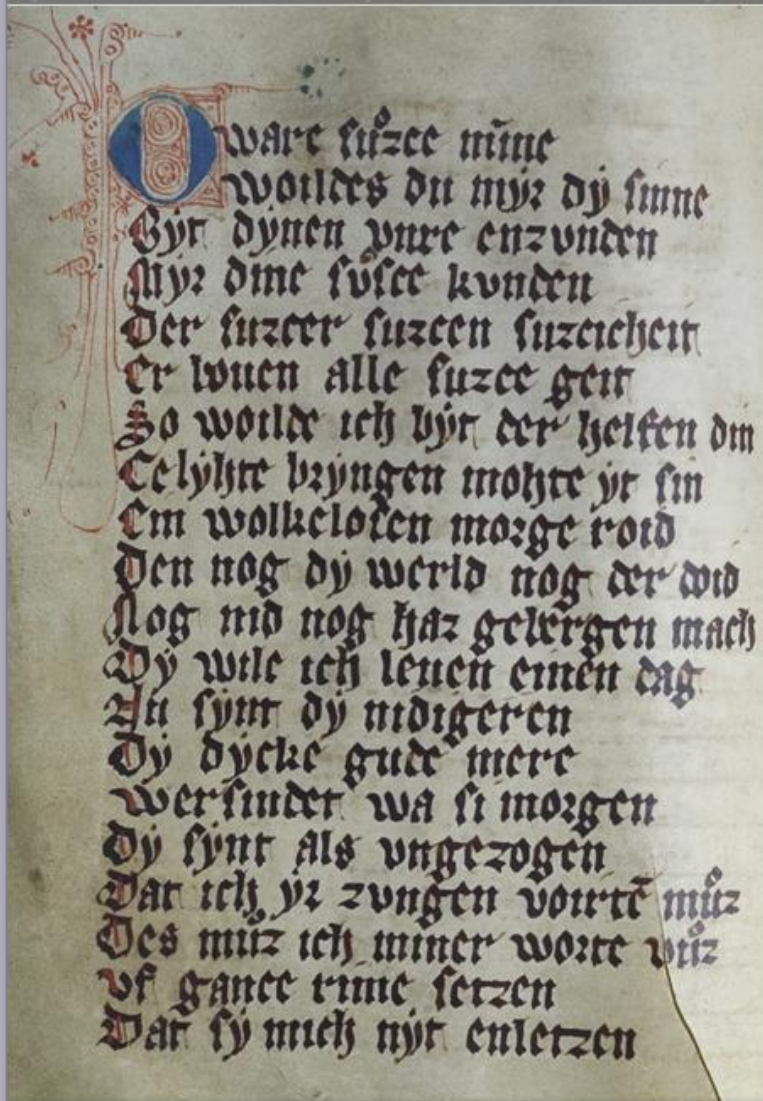 O ware sůzee mīne
woildes du myr dy sinne
Myt dynen vure enzvnden
Myr dine sůsee kvnden
Der suzeer suzeen suzeicheit
Er bouen alle suzee geit
So woilde ich byt der helfen din
Te lyhte bryngen mohte yt sin
Ein wolkeloten morge roid
Den nog dy werld nog der doid
Nog nid nog haz gelergen mach
Dy wile ich leuen einen dag
Nu synt dy nidigeren
Dy dycke gude mere
wersindet wa si morgen
Dy synt als vngezogen
Dat ich yr zvngen voirtē můz
Des můz ich miner worte vůz
vf gance rime setzen
Dat sy mich nyt enletzen